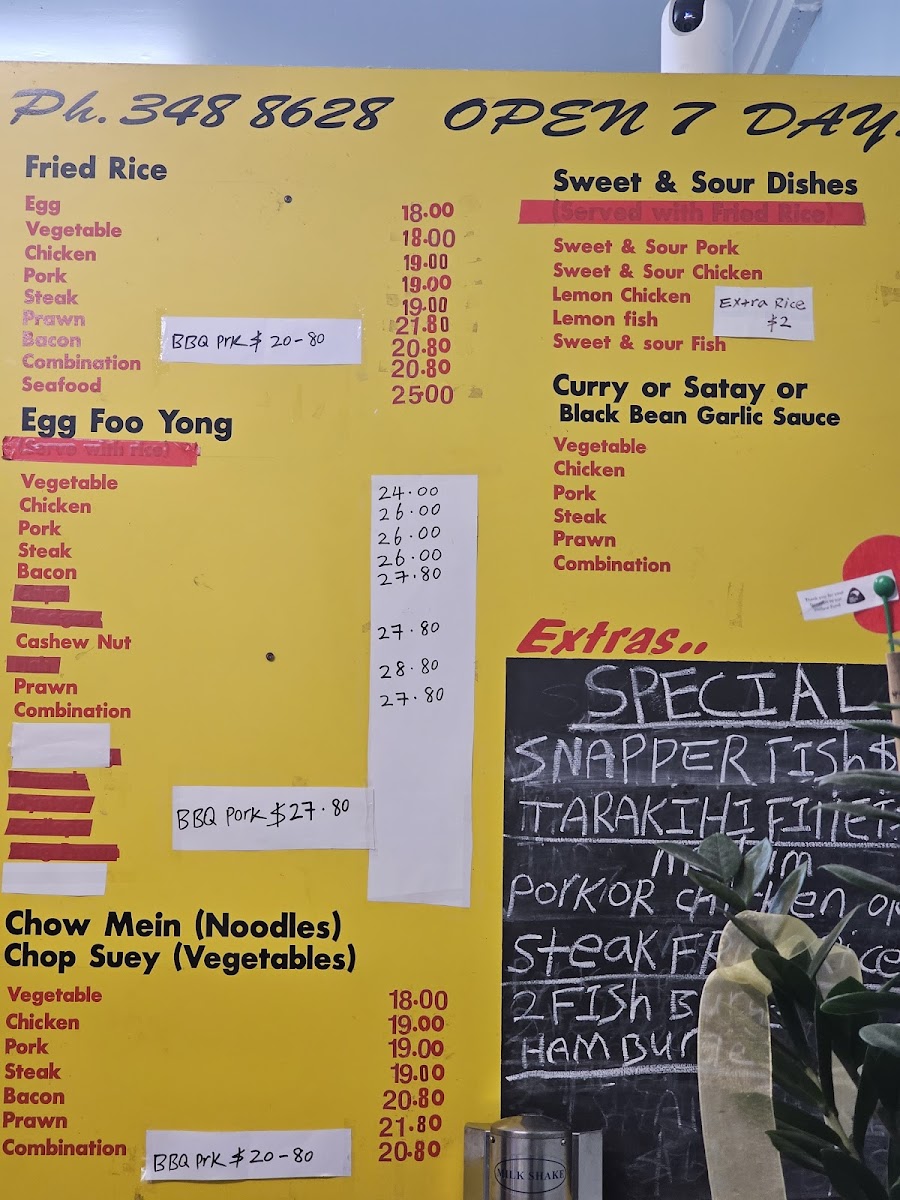 Ph. 348 8628 OPEN 7 DAY
Fried Rice
Egg 18.00
Vegetable 18.00
Chicken 19.00
Pork 19.00
Steak 19.00
Prawn 21.80
Bacon 20.80
BBQ Prk $ 20-80
Combination 20.80
Seafood 25.00
Egg Foo Yong
(Serve with rice)
Vegetable 24.00
Chicken 26.00
Pork 26.00
Steak 26.00
Bacon 27.80
Cashew Nut 27.80
Prawn 28.80
Combination 27.80
BBQ Pork $27.80
Chow Mein (Noodles)
Chop Suey (Vegetables)
Vegetable 18.00
Chicken 19.00
Pork 19.00
Steak 19.00
Bacon 20.80
Prawn 21.80
Combination 20.80
BBQ Prk $20-80
Sweet & Sour Dishes
(Served with Fried Rice)
Sweet & Sour Pork
Sweet & Sour Chicken
Lemon Chicken
Lemon fish
Sweet & sour Fish
Extra Rice
$2
Curry or Satay or
Black Bean Garlic Sauce
Vegetable
Chicken
Pork
Steak
Prawn
Combination
Extras..
SPECIAL
SNAPPER FISh $
TARAKIHI
Pork OR chicken or
Steak
2 FISh
HAMBURGE
MILK SHAKE